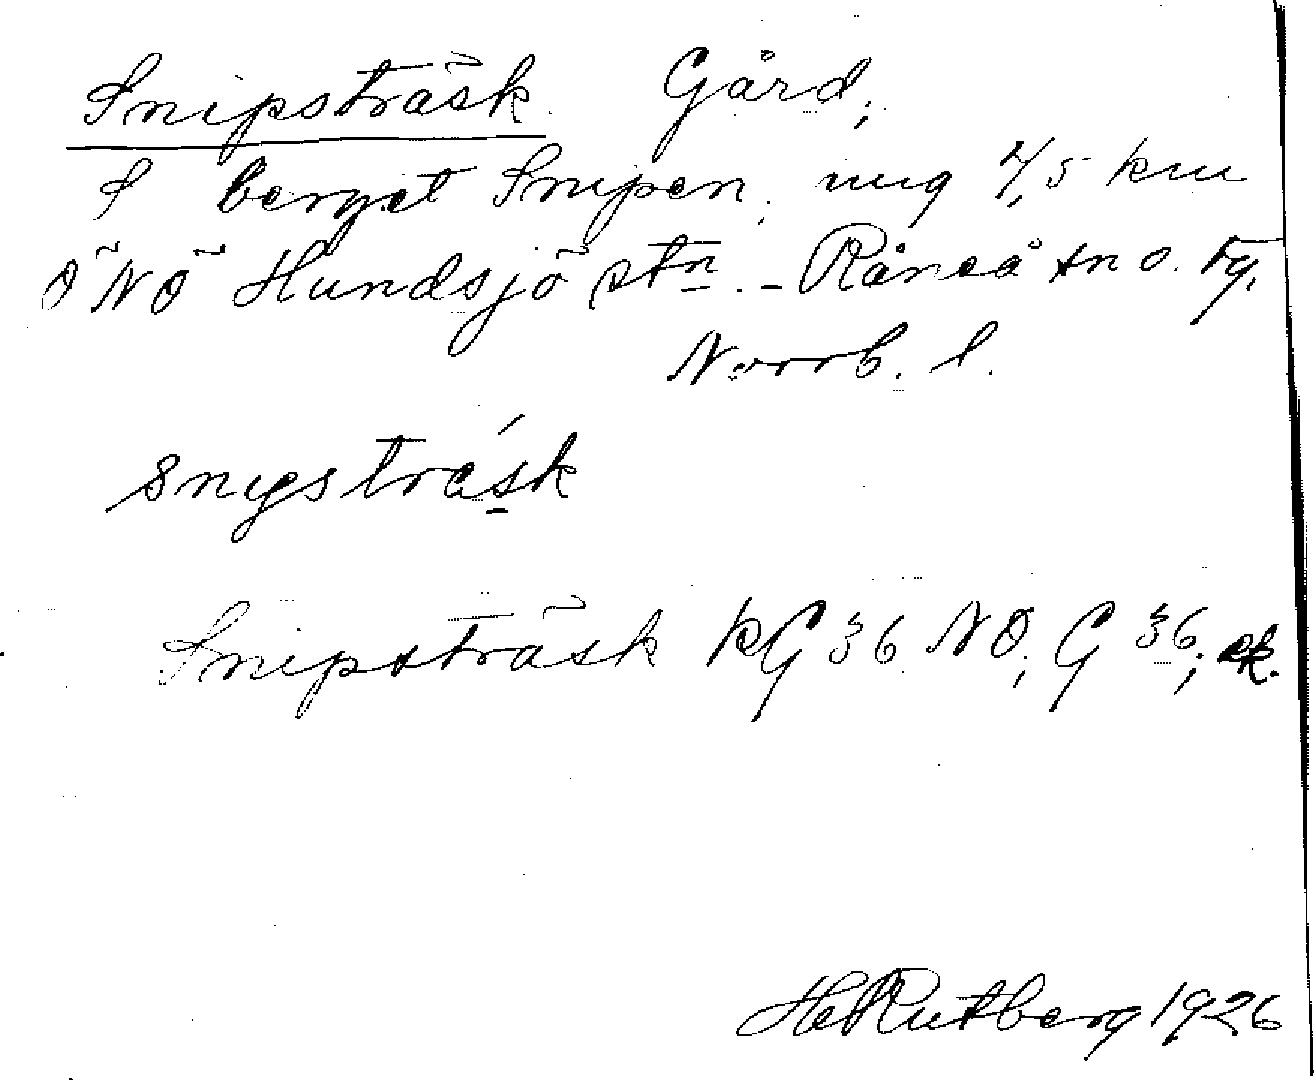 Snipsträsk Gård,
S berget Snipen, ung 7,5 km
ÖNÖ Hundsjö stn. - Råneå sn o. tg.
Norrb. l.
snips träsk
Snipsträsk KG 36 NO, G 36, ek.
HeRutberg 1926